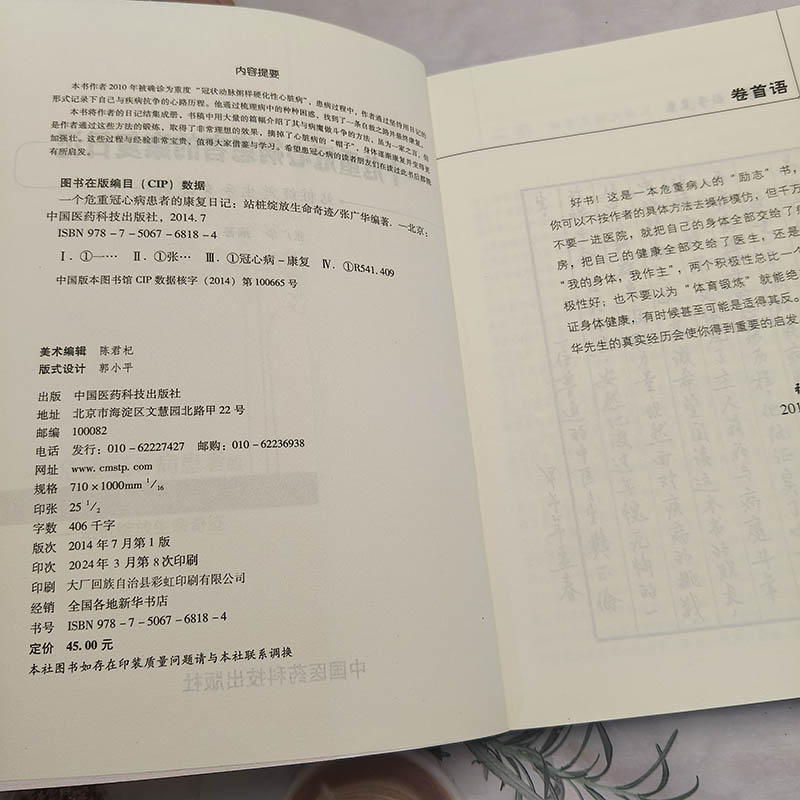 内容提要
本书作者2010年被确诊为重度“冠状动脉粥样硬化性心脏病”,患病过程中,作者通过坚持用日记的
形式记录下自己与疾病抗争的心路历程。他通过梳理病中的种种困惑,找到了一条自救之路并最终康复。
本书将作者的日记结集成册,书稿中用大量的篇幅介绍了其与病魔做斗争的方法,虽为一家之言,但
是作者通过这些方法的锻炼,取得了非常理想的效果,摘掉了心脏病的“帽子”,身体逐渐康复并变得更
加强壮。这些过程与经验非常宝贵,值得大家借鉴与学习。希望患冠心病的读者朋友们在读过此书后都能
有所启发。
图书在版编目(CIP)数据
一个危重冠心病患者的康复日记:站桩绽放生命奇迹/张广华编著.—北京:
中国医药科技出版社,2014.7
ISBN 978-7-5067-6818-4
Ⅰ.①一… Ⅱ.①张… Ⅲ.①冠心病-康复 Ⅳ.①R541.409
中国版本图书馆CIP数据核字(2014)第100665号
美术编辑 陈君杞
版式设计 郭小平
出版 中国医药科技出版社
地址 北京市海淀区文慧园北路甲22号
邮编 100082
电话 发行:010-62227427 邮购:010-62236938
网址 www.cmstp.com
规格 710×1000mm 1/16
印张 25 1/2
字数 406千字
版次 2014年7月第1版
印次 2024年3月第8次印刷
印刷 大厂回族自治县彩虹印刷有限公司
经销 全国各地新华书店
书号 ISBN 978-7-5067-6818-4
定价 45.00元
本社图书如存在印装质量问题请与本社联系调换
卷首语
好书!这是一本危重病人的“励志”书,
你可以不按作者的具体方法去操作模仿,但千万
不要一进医院,就把自己的身体全部交给了病
房,把自己的健康全部交给了医生,还是
“我的身体,我作主”,两个积极性总比一个
极性好;也不要以为“体育锻炼”就能绝
证身体健康,有时候甚至可能是适得其反。
华先生的真实经历会使你得到重要的启发
201